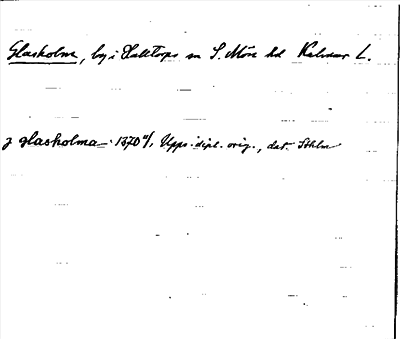 Glasholma, by i Halltorps sn S. Möre hd Kalmar L.
j glasholma 1370 Upps. dipl. orig., dat. Sthlm